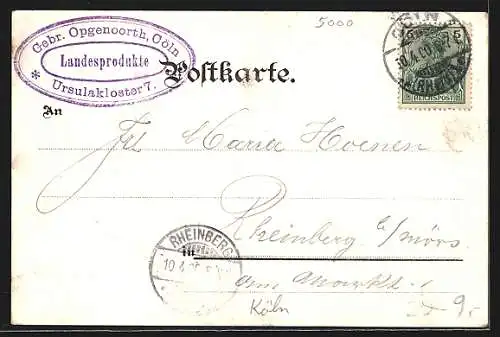 5000
Gebr. Opgenoorth, Cöln
Landesprodukte
* Ursulakloster 7.
CÖLN
5 5
10.4.00
REICHSPOST
Postkarte.
An
Frl Maria Hoenen
Rheinberg b/mörs
in
RHEINBERG
10.4
am Markt.
Köln
9.-